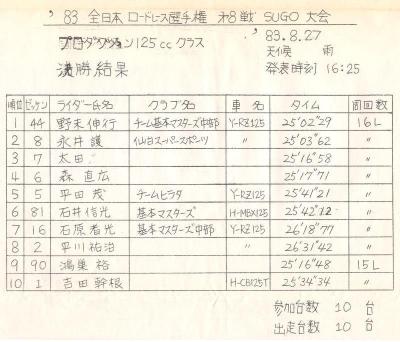 '83 全日本ロードレス選手権 第8戦 SUGO 大会
プロダクション125cc クラス
'83.8.27
天候 雨
決勝結果
発表時刻 16:25
順位 ゼッケン ライダー氏名 クラブ名 車名 タイム 周回数
1 44 野末伸行 チーム基本マスターズ中部 Y-RZ125 25'02"29 16L
2 8 永井護 仙台スーパースポーツ 〃 25'03"62 〃
3 7 太田 25'16"58 〃
4 6 森直広 25'17"71 〃
5 5 平田茂 チームヒラタ Y-RZ125 25'41"21 〃
6 81 石井信光 基本マスターズ H-MBX125 25'42"12 〃
7 16 石原看光 基本マスターズ中部 Y-RZ125 26'18"77 〃
8 2 平川祐治 〃 26'31"42 〃
9 90 鴻巣裕 25'16"48 15L
10 1 吉田幹根 H-CB125T 25'34"34 〃
参加台数 10 台
出走台数 10 台